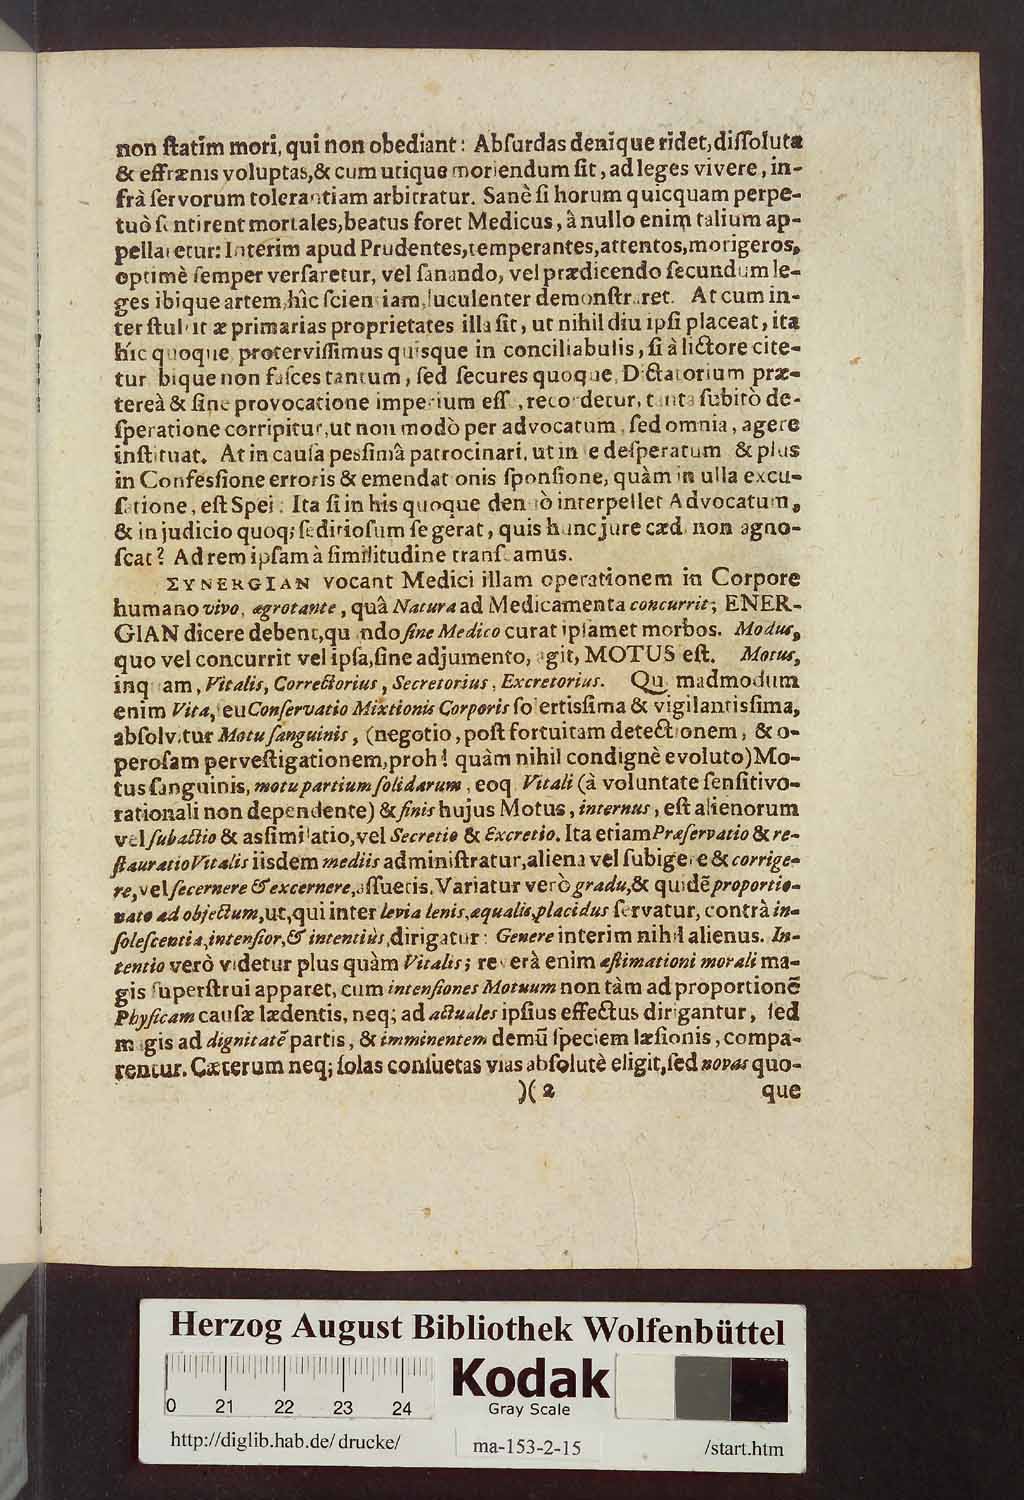 non ſtatim mori, qui non obediant: Abſurdas denique ridet, diſſolutæ
& effrænis voluptas, & cum utique moriendum ſit, ad leges vivere, in-
frà ſervorum tolerantiam arbitratur. Sanè ſi horum quicquam perpe-
tuò ſentirent mortales, beatus foret Medicus, â nullo enim talium ap-
pellaretur: Interim apud Prudentes, temperantes, attentos, morigeros,
optimè ſemper verſaretur, vel ſanando, vel prædicendo ſecundum le-
ges ibique artem, hîc ſcientiam, luculenter demonſtraret. At cum in-
ter ſtultitiæ primarias proprietates illa ſit, ut nihil diu ipſi placeat, ita
híc quoque proterviſſimus quisque in conciliabulis, ſi à lictore cite-
tur bique non faſces tantum, ſed ſecures quoque, Dictatorium præ-
tereà & ſine provocatione imperium eſſ, recordetur, tanta ſubitò de-
ſperatione corripitur, ut non modò per advocatum, ſed omnia, agere
inſtituat. At in cauſa pesſimâ patrocinari, ut in e deſperatum & plus
in Confesſione erroris & emendationis ſponſione, quàm in ulla excu-
ſatione, eſt Spei: Ita ſi in his quoque denuò interpellet Advocatum,
& in judicio quoq; ſeditioſum ſe gerat, quis hunc jure cædi non agno-
ſcat? Ad rem ipſam à ſimilitudine tranſeamus.
ΣYNERGIAN vocant Medici illam operationem in Corpore
humano vivo, ægrotante, quâ Natura ad Medicamenta concurrit; ENER-
GIAN dicere debent, quando ſine Medico curat ipſamet morbos. Modus,
quo vel concurrit vel ipſa, ſine adjumento, agit, MOTUS eſt. Motus,
inquam, Vitalis, Correctorius, Secretorius, Excretorius. Quemadmodum
enim Vita, ſeu Conſervatio Mixtionis Corporis ſolertisſima & vigilantisſima,
abſolvitur Motu ſanguinis, (negotio, poſt fortuitam detectionem, & o-
peroſam perveſtigationem, proh! quàm nihil condignè evoluto) Mo-
tus ſanguinis, motu partium ſolidarum, eoq Vitali (à voluntate ſenſitivo-
rationali non dependente) & finis hujus Motus, internus, eſt alienorum
vel ſubactio & asſimilatio, vel Secretio & Excretio. Ita etiam Præſervatio & re-
ſtauratio Vitalis iisdem mediis adminiſtratur, aliena vel ſubigere & corrige-
re, vel ſecernere & excernere, aſſuetis. Variatur verò gradu, & quidē proportio-
nato ad objectum, ut, qui inter levia lenis, æqualis, placidus ſervatur, contrà in-
ſoleſcentia, intenſior, & intentiùs, dirigatur: Genere interim nihil alienus. In-
tentio verò videtur plus quàm Vitalis; reverà enim æſtimationi morali ma-
gis ſuperſtrui apparet, cum intenſiones Motuum non tàm ad proportionē
Phyſicam cauſæ lædentis, neq; ad actuales ipſius effectus dirigantur, ſed
magis ad dignitatē partis, & imminentem demū ſpeciem læſionis, compa-
rentur. Cæterum neq; ſolas conſuetas vias abſolutè eligit, ſed novas quo-
)( 2 que
Herzog August Bibliothek Wolfenbüttel
Kodak
Gray Scale
0 21 22 23 24
http://diglib.hab.de/drucke/ ma-153-2-15 /start.htm